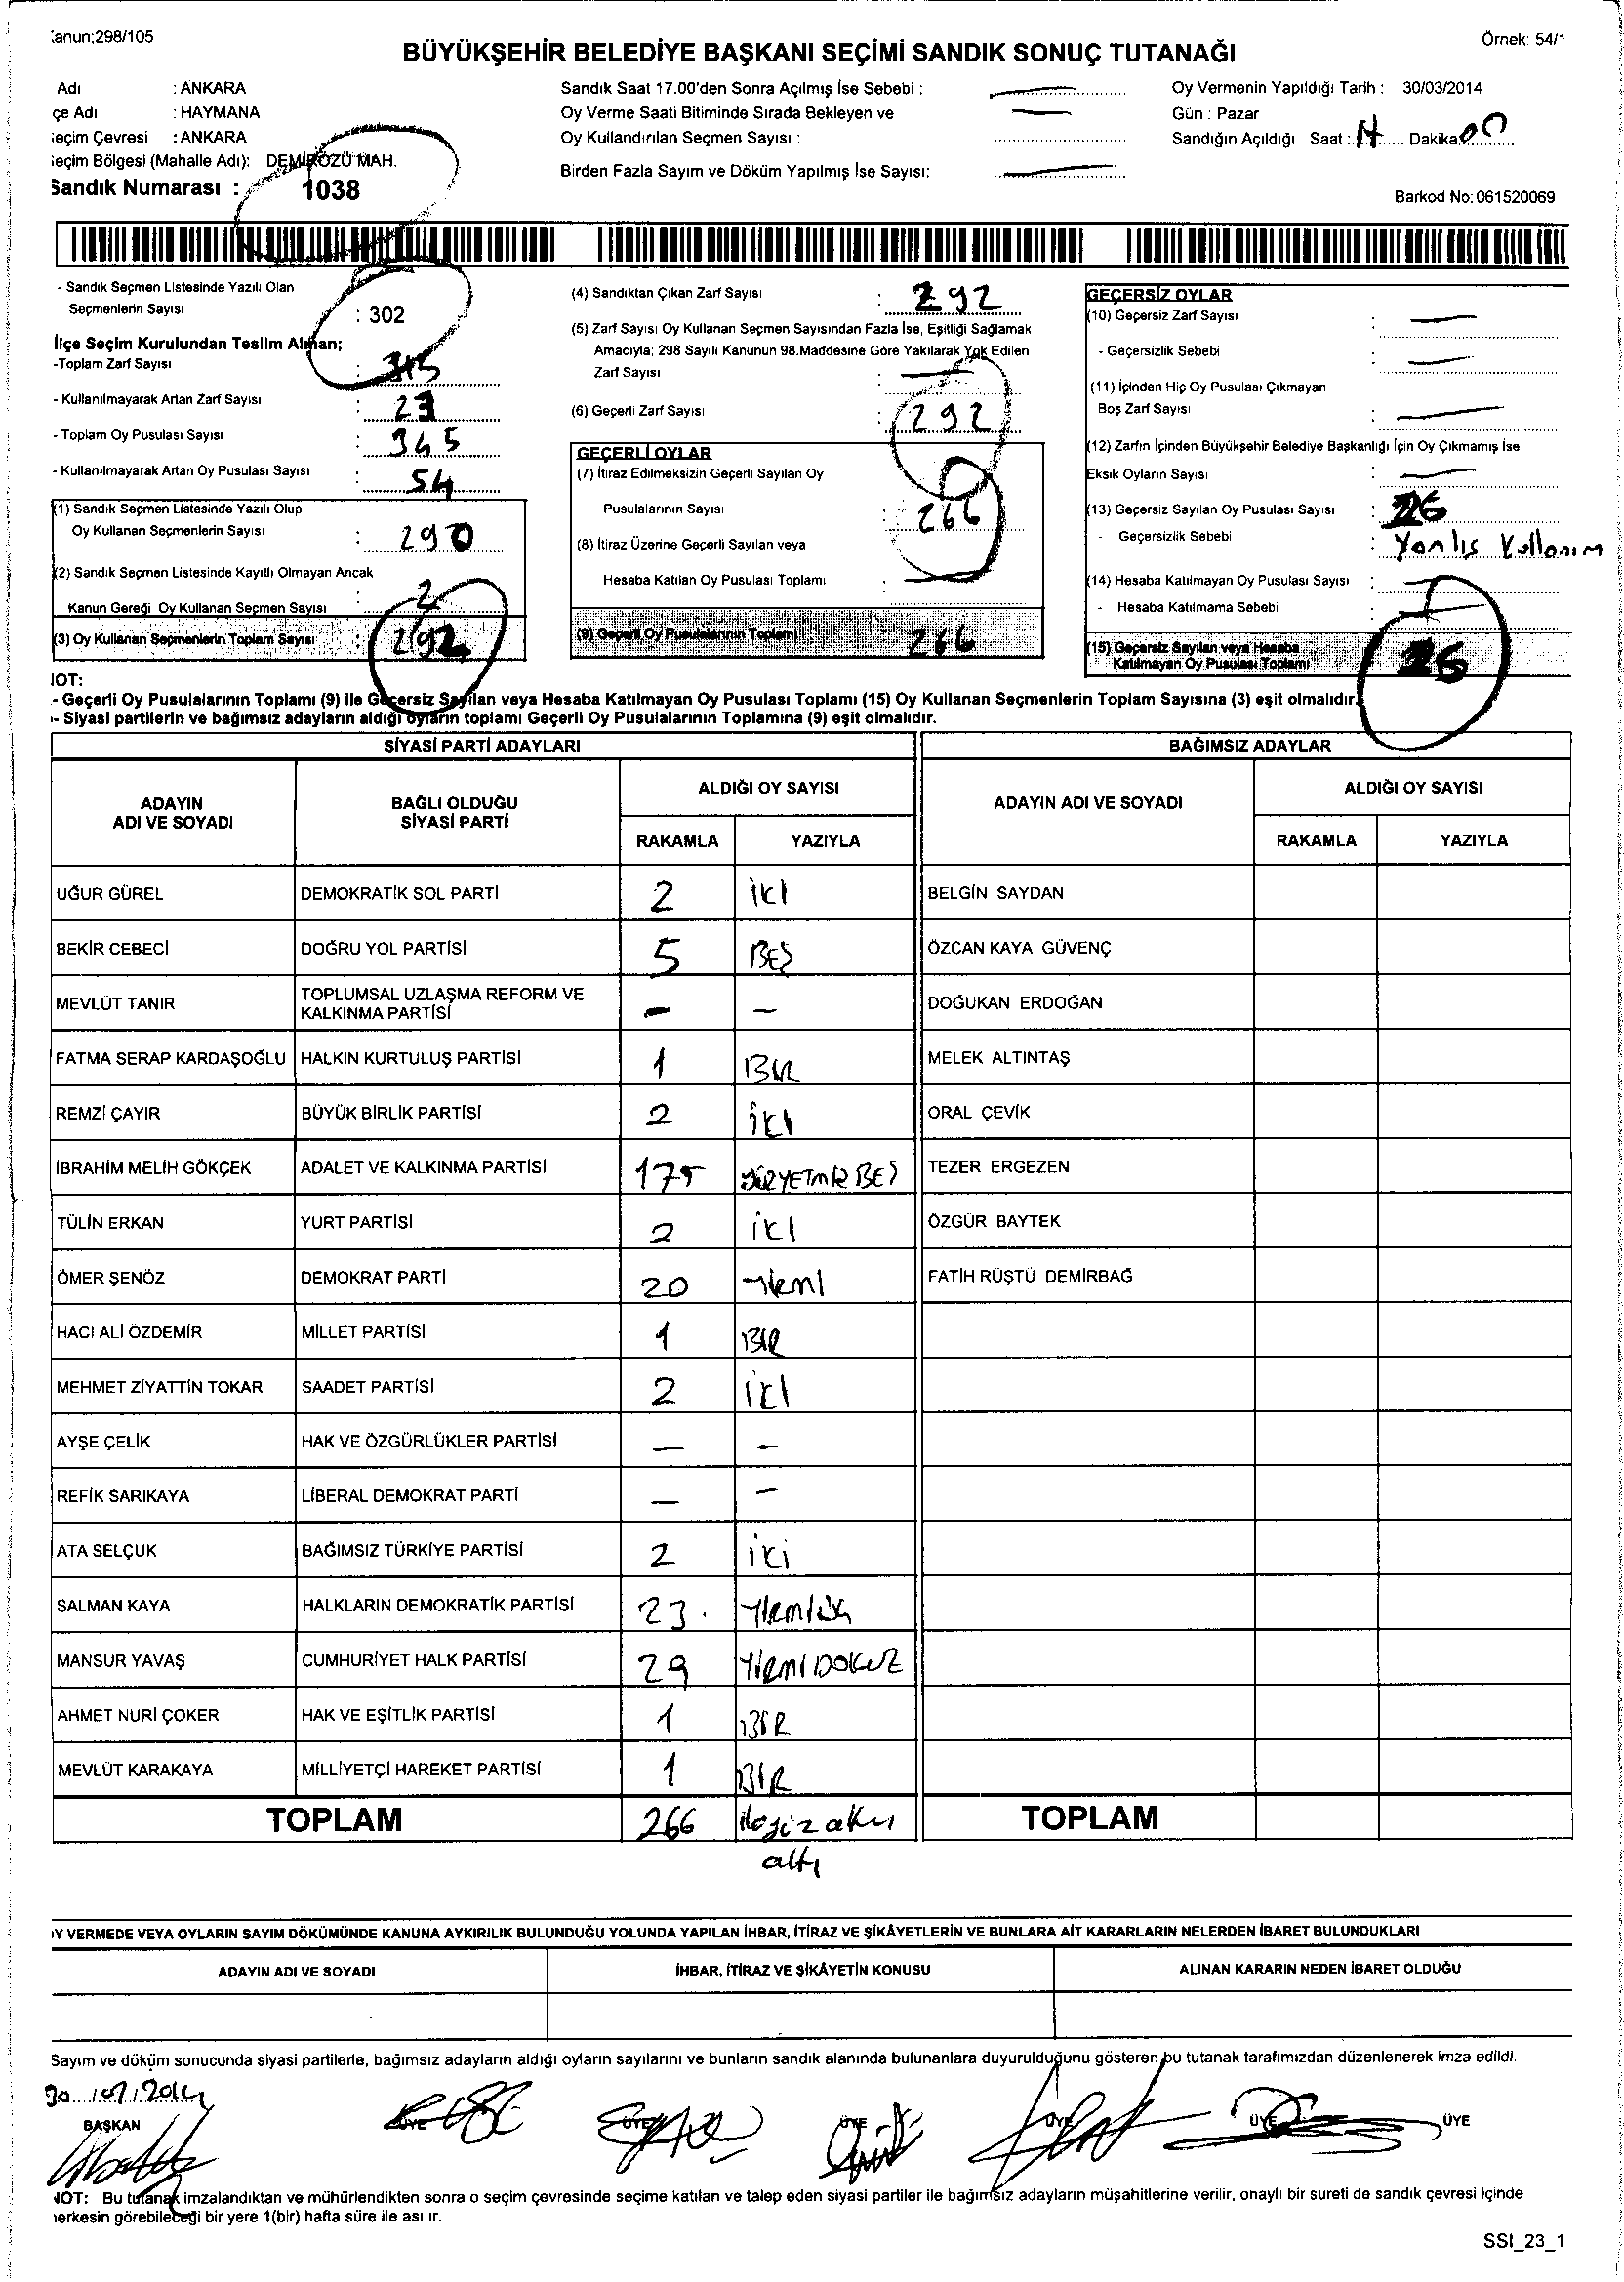 anun;298/105
Örnek: 54/1
BÜYÜKŞEHİR BELEDİYE BAŞKANI SEÇİMİ SANDIK SONUÇ TUTANAĞI
Adı : ANKARA
çe Adı : HAYMANA
eçim Çevresi : ANKARA
eçim Bölgesi (Mahalle Adı): DEMİRÖZÜ MAH.
Sandık Numarası : 1038
Sandık Saat 17.00'den Sonra Açılmış İse Sebebi : —
Oy Verme Saati Bitiminde Sırada Bekleyen ve
Oy Kullandırılan Seçmen Sayısı : —
Birden Fazla Sayım ve Döküm Yapılmış İse Sayısı: —
Oy Vermenin Yapıldığı Tarih : 30/03/2014
Gün : Pazar
Sandığın Açıldığı Saat : Dakika 00
Barkod No: 061520069
- Sandık Seçmen Listesinde Yazılı Olan
Seçmenlerin Sayısı : 302
İlçe Seçim Kurulundan Teslim Alınan;
-Toplam Zarf Sayısı : 315
- Kullanılmayarak Artan Zarf Sayısı : 23
- Toplam Oy Pusulası Sayısı : 345
- Kullanılmayarak Artan Oy Pusulası Sayısı : 54
(1) Sandık Seçmen Listesinde Yazılı Olup
Oy Kullanan Seçmenlerin Sayısı : 290
(2) Sandık Seçmen Listesinde Kayıtlı Olmayan Ancak
Kanun Gereği Oy Kullanan Seçmen Sayısı : 2
(3) Oy Kullanan Seçmenlerin Toplam Sayısı : 292
(4) Sandıktan Çıkan Zarf Sayısı : 292
(5) Zarf Sayısı Oy Kullanan Seçmen Sayısından Fazla İse, Eşitliği Sağlamak
Amacıyla; 298 Sayılı Kanunun 98.Maddesine Göre Yakılarak Yok Edilen
Zarf Sayısı : —
(6) Geçerli Zarf Sayısı : 292
GEÇERLİ OYLAR
(7) İtiraz Edilmeksizin Geçerli Sayılan Oy
Pusulalarının Sayısı : 266
(8) İtiraz Üzerine Geçerli Sayılan veya
Hesaba Katılan Oy Pusulası Toplamı : —
(9) Geçerli Oy Pusulalarının Toplamı : 266
GEÇERSİZ OYLAR
(10) Geçersiz Zarf Sayısı : —
- Geçersizlik Sebebi : —
(11) İçinden Hiç Oy Pusulası Çıkmayan
Boş Zarf Sayısı : —
(12) Zarfın İçinden Büyükşehir Belediye Başkanlığı İçin Oy Çıkmamış İse
Eksik Oyların Sayısı : —
(13) Geçersiz Sayılan Oy Pusulası Sayısı : 26
- Geçersizlik Sebebi : Yanlış Kullanım
(14) Hesaba Katılmayan Oy Pusulası Sayısı : —
- Hesaba Katılmama Sebebi : —
(15) Geçersiz Sayılan veya Hesaba
Katılmayan Oy Pusulası Toplamı : 26
NOT:
- Geçerli Oy Pusulalarının Toplamı (9) ile Geçersiz Sayılan veya Hesaba Katılmayan Oy Pusulası Toplamı (15) Oy Kullanan Seçmenlerin Toplam Sayısına (3) eşit olmalıdır.
- Siyasi partilerin ve bağımsız adayların aldığı oyların toplamı Geçerli Oy Pusulalarının Toplamına (9) eşit olmalıdır.
SİYASİ PARTİ ADAYLARI BAĞIMSIZ ADAYLAR
ADAYIN ADI VE SOYADI BAĞLI OLDUĞU SİYASİ PARTİ ALDIĞI OY SAYISI ADAYIN ADI VE SOYADI ALDIĞI OY SAYISI
RAKAMLA YAZIYLA RAKAMLA YAZIYLA
UĞUR GÜREL DEMOKRATİK SOL PARTİ 2 iki BELGİN SAYDAN
BEKİR CEBECİ DOĞRU YOL PARTİSİ 5 BEŞ ÖZCAN KAYA GÜVENÇ
MEVLÜT TANIR TOPLUMSAL UZLAŞMA REFORM VE KALKINMA PARTİSİ — — DOĞUKAN ERDOĞAN
FATMA SERAP KARDAŞOĞLU HALKIN KURTULUŞ PARTİSİ 1 BİR MELEK ALTINTAŞ
REMZİ ÇAYIR BÜYÜK BİRLİK PARTİSİ 2 iki ORAL ÇEVİK
İBRAHİM MELİH GÖKÇEK ADALET VE KALKINMA PARTİSİ 175 TEZER ERGEZEN
TÜLİN ERKAN YURT PARTİSİ 2 iki ÖZGÜR BAYTEK
ÖMER ŞENÖZ DEMOKRAT PARTİ 20 Yirmi FATİH RÜŞTÜ DEMİRBAĞ
HACI ALİ ÖZDEMİR MİLLET PARTİSİ 1 BİR
MEHMET ZİYATTİN TOKAR SAADET PARTİSİ 2 iki
AYŞE ÇELİK HAK VE ÖZGÜRLÜKLER PARTİSİ — —
REFİK SARIKAYA LİBERAL DEMOKRAT PARTİ — —
ATA SELÇUK BAĞIMSIZ TÜRKİYE PARTİSİ 2 iki
SALMAN KAYA HALKLARIN DEMOKRATİK PARTİSİ 23.
MANSUR YAVAŞ CUMHURİYET HALK PARTİSİ 29 YİRMİ DOKUZ
AHMET NURİ ÇOKER HAK VE EŞİTLİK PARTİSİ 1 BİR
MEVLÜT KARAKAYA MİLLİYETÇİ HAREKET PARTİSİ 1 BİR
TOPLAM 266 TOPLAM
altı
Y VERMEDE VEYA OYLARIN SAYIM DÖKÜMÜNDE KANUNA AYKIRILIK BULUNDUĞU YOLUNDA YAPILAN İHBAR, İTİRAZ VE ŞİKÂYETLERİN VE BUNLARA AİT KARARLARIN NELERDEN İBARET BULUNDUKLARI
ADAYIN ADI VE SOYADI İHBAR, İTİRAZ VE ŞİKÂYETİN KONUSU ALINAN KARARIN NEDEN İBARET OLDUĞU
Sayım ve döküm sonucunda siyasi partilerle, bağımsız adayların aldığı oyların sayılarını ve bunların sandık alanında bulunanlara duyurulduğunu gösteren bu tutanak tarafımızdan düzenlenerek imza edildi.
BAŞKAN ÜYE ÜYE ÜYE ÜYE ÜYE ÜYE
NOT: Bu tutanak imzalandıktan ve mühürlendikten sonra o seçim çevresinde seçime katılan ve talep eden siyasi partiler ile bağımsız adayların müşahitlerine verilir, onaylı bir sureti de sandık çevresi içinde
herkesin görebileceği bir yere 1(bir) hafta süre ile asılır.
SSI_23_1